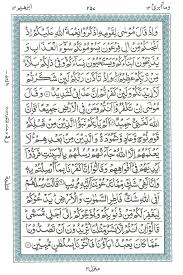 وما ابرئ ١٣
٢٥٧
ابرٰهیم ١٤
وَاِذْ قَالَ مُوْسٰى لِقَوْمِهِ اذْكُرُوْا نِعْمَةَ اللّٰهِ عَلَيْكُمْ اِذْ
اَنْجٰىكُمْ مِّنْ اٰلِ فِرْعَوْنَ يَسُوْمُوْنَكُمْ سُوْٓءَ الْعَذَابِ وَ
يُذَبِّحُوْنَ اَبْنَآءَكُمْ وَيَسْتَحْيُوْنَ نِسَآءَكُمْ وَفِيْ ذٰلِكُمْ بَلَآءٌ مِّنْ
رَّبِّكُمْ عَظِيْمٌ وَاِذْ تَاَذَّنَ رَبُّكُمْ لَئِنْ شَكَرْتُمْ
لَاَزِيْدَنَّكُمْ وَلَئِنْ كَفَرْتُمْ اِنَّ عَذَابِيْ لَشَدِيْدٌ وَقَالَ
مُوْسٰٓى اِنْ تَكْفُرُوْٓا اَنْتُمْ وَمَنْ فِى الْاَرْضِ جَمِيْعًا فَاِنَّ
اللّٰهَ لَغَنِيٌّ حَمِيْدٌ اَلَمْ يَاْتِكُمْ نَبَؤُا الَّذِيْنَ مِنْ قَبْلِكُمْ
قَوْمِ نُوْحٍ وَّعَادٍ وَّثَمُوْدَ وَالَّذِيْنَ مِنْۢ بَعْدِهِمْ لَا
يَعْلَمُهُمْ اِلَّا اللّٰهُ جَآءَتْهُمْ رُسُلُهُمْ بِالْبَيِّنٰتِ فَرَدُّوْٓا اَيْدِيَهُمْ
فِيْٓ اَفْوَاهِهِمْ وَقَالُوْٓا اِنَّا كَفَرْنَا بِمَآ اُرْسِلْتُمْ بِهٖ وَاِنَّا
لَفِيْ شَكٍّ مِّمَّا تَدْعُوْنَنَآ اِلَيْهِ مُرِيْبٍ قَالَتْ رُسُلُهُمْ
اَفِى اللّٰهِ شَكٌّ فَاطِرِ السَّمٰوٰتِ وَالْاَرْضِ يَدْعُوْكُمْ
لِيَغْفِرَ لَكُمْ مِّنْ ذُنُوْبِكُمْ وَيُؤَخِّرَكُمْ اِلٰٓى اَجَلٍ مُّسَمًّى
قَالُوْٓا اِنْ اَنْتُمْ اِلَّا بَشَرٌ مِّثْلُنَا تُرِيْدُوْنَ اَنْ تَصُدُّوْنَا
عَمَّا كَانَ يَعْبُدُ اٰبَآؤُنَا فَاْتُوْنَا بِسُلْطٰنٍ مُّبِيْنٍ
منزل ٣